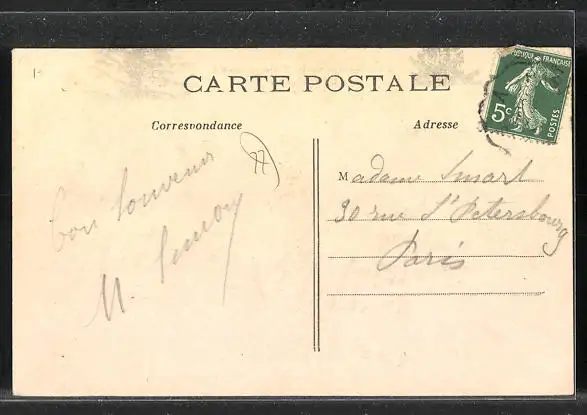 1-
CARTE POSTALE
Correspondance
Adresse
RÉPUBLIQUE FRANÇAISE
5c
POSTES
77
Bon Souvenir
M. Simon
Madame Smart
30 rue St Petersbourg
Paris